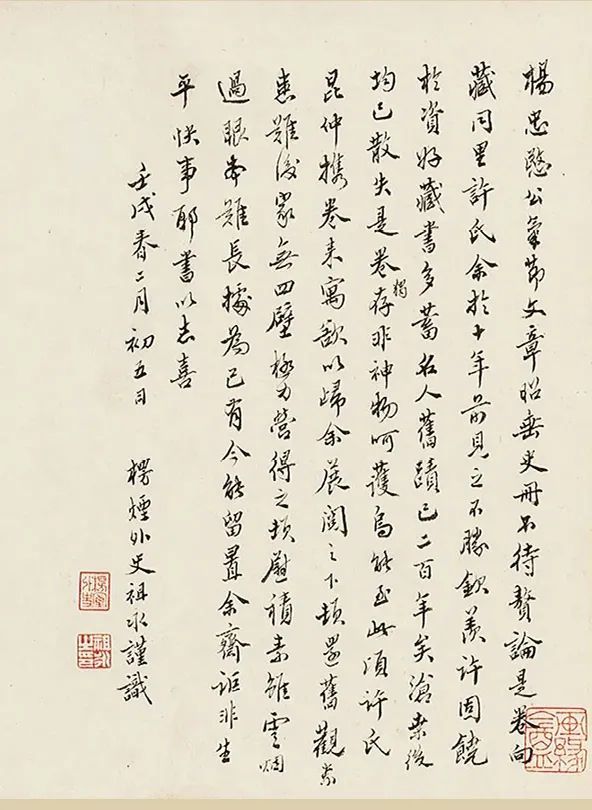 楊忠愍公氣節文章昭垂史冊不待贅論是卷向
藏同里許氏余於十年前見之不勝欽羨許固饒
於資好藏書多蓄名人舊蹟已二百年矣滄桑後
均已散失是卷獨存非神物呵護烏能至此頃許氏
昆仲攜卷來寓以歸余展閱之下頓還舊觀奈
患難後家無四壁極力營得之頓慰積素雖雲烟
過眼本難長據為己有今能留置余齋詎非生
平快事耶書以志喜
壬戌春二月初五日 楞煙外史祖永謹識